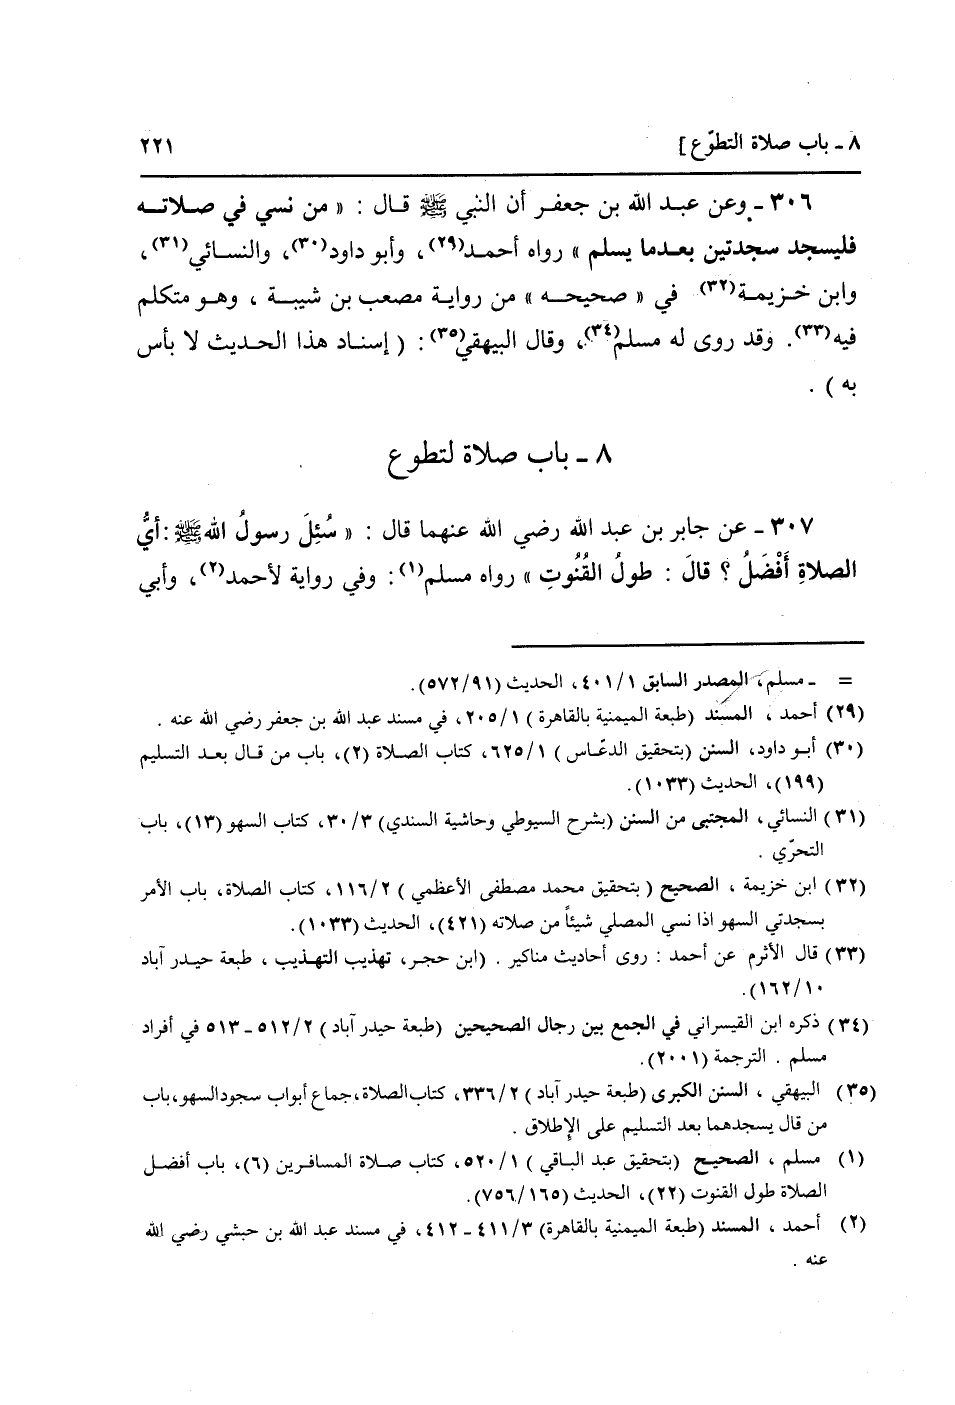 ٨ - باب صلاة التطوّع ] ٢٢١
٣٠٦ - وعن عبد الله بن جعفر أن النبي ﷺ قال : « من نسي في صلاته
فليسجد سجدتين بعدما يسلم » رواه أحمد(٢٩)، وأبو داود(٣٠)، والنسائي(٣١)،
وابن خزيمة(٣٢) في « صحيحه » من رواية مصعب بن شيبة ، وهو متكلم
فيه(٣٣). وقد روى له مسلم(٣٤)، وقال البيهقي(٣٥): ( إسناد هذا الحديث لا بأس
به ) .
٨ - باب صلاة لتطوع
٣٠٧ - عن جابر بن عبد الله رضي الله عنهما قال : « سُئِلَ رسولُ الله ﷺ: أيُّ
الصلاةِ أَفْضَلُ ؟ قالَ : طولُ القُنُوتِ » رواه مسلم(١): وفي رواية لأحمد(٢)، وأبي
= - مسلم، المصدر السابق ٤٠١/١، الحديث (٥٧٢/٩١).
(٢٩) أحمد ، المسند (طبعة الميمنية بالقاهرة ) ٢٠٥/١، في مسند عبد الله بن جعفر رضي الله عنه .
(٣٠) أبو داود، السنن (بتحقيق الدعّاس ) ٦٢٥/١، كتاب الصلاة (٢)، باب من قال بعد التسليم
(١٩٩)، الحديث (١٠٣٣).
(٣١) النسائي، المجتبى من السنن (بشرح السيوطي وحاشية السندي) ٣٠/٣، كتاب السهو (١٣)، باب
التحرّي .
(٣٢) ابن خزيمة ، الصحيح ( بتحقيق محمد مصطفى الأعظمي ) ١١٦/٢، كتاب الصلاة، باب الأمر
بسجدتي السهو اذا نسي المصلي شيئاً من صلاته (٤٢١)، الحديث (١٠٣٣).
(٣٣) قال الأثرم عن أحمد : روى أحاديث مناكير . (ابن حجر، تهذيب التهذيب ، طبعة حيدر آباد
١٦٢/١٠).
(٣٤) ذكره ابن القيسراني في الجمع بين رجال الصحيحين (طبعة حيدر آباد ) ٥١٢/٢ - ٥١٣ في أفراد
مسلم . الترجمة (٢٠٠١).
(٣٥) البيهقي ، السنن الكبرى (طبعة حيدر آباد ) ٣٣٦/٢، كتاب الصلاة، جماع أبواب سجود السهو، باب
من قال يسجدهما بعد التسليم على الإطلاق .
(١) مسلم ، الصحيح (بتحقيق عبد الباقي ) ٥٢٠/١، كتاب صلاة المسافرين (٦)، باب أفضل
الصلاة طول القنوت (٢٢)، الحديث (٧٥٦/١٦٥).
(٢) أحمد ، المسند (طبعة الميمنية بالقاهرة) ٤١١/٣ - ٤١٢، في مسند عبد الله بن حبشي رضي الله
عنه .